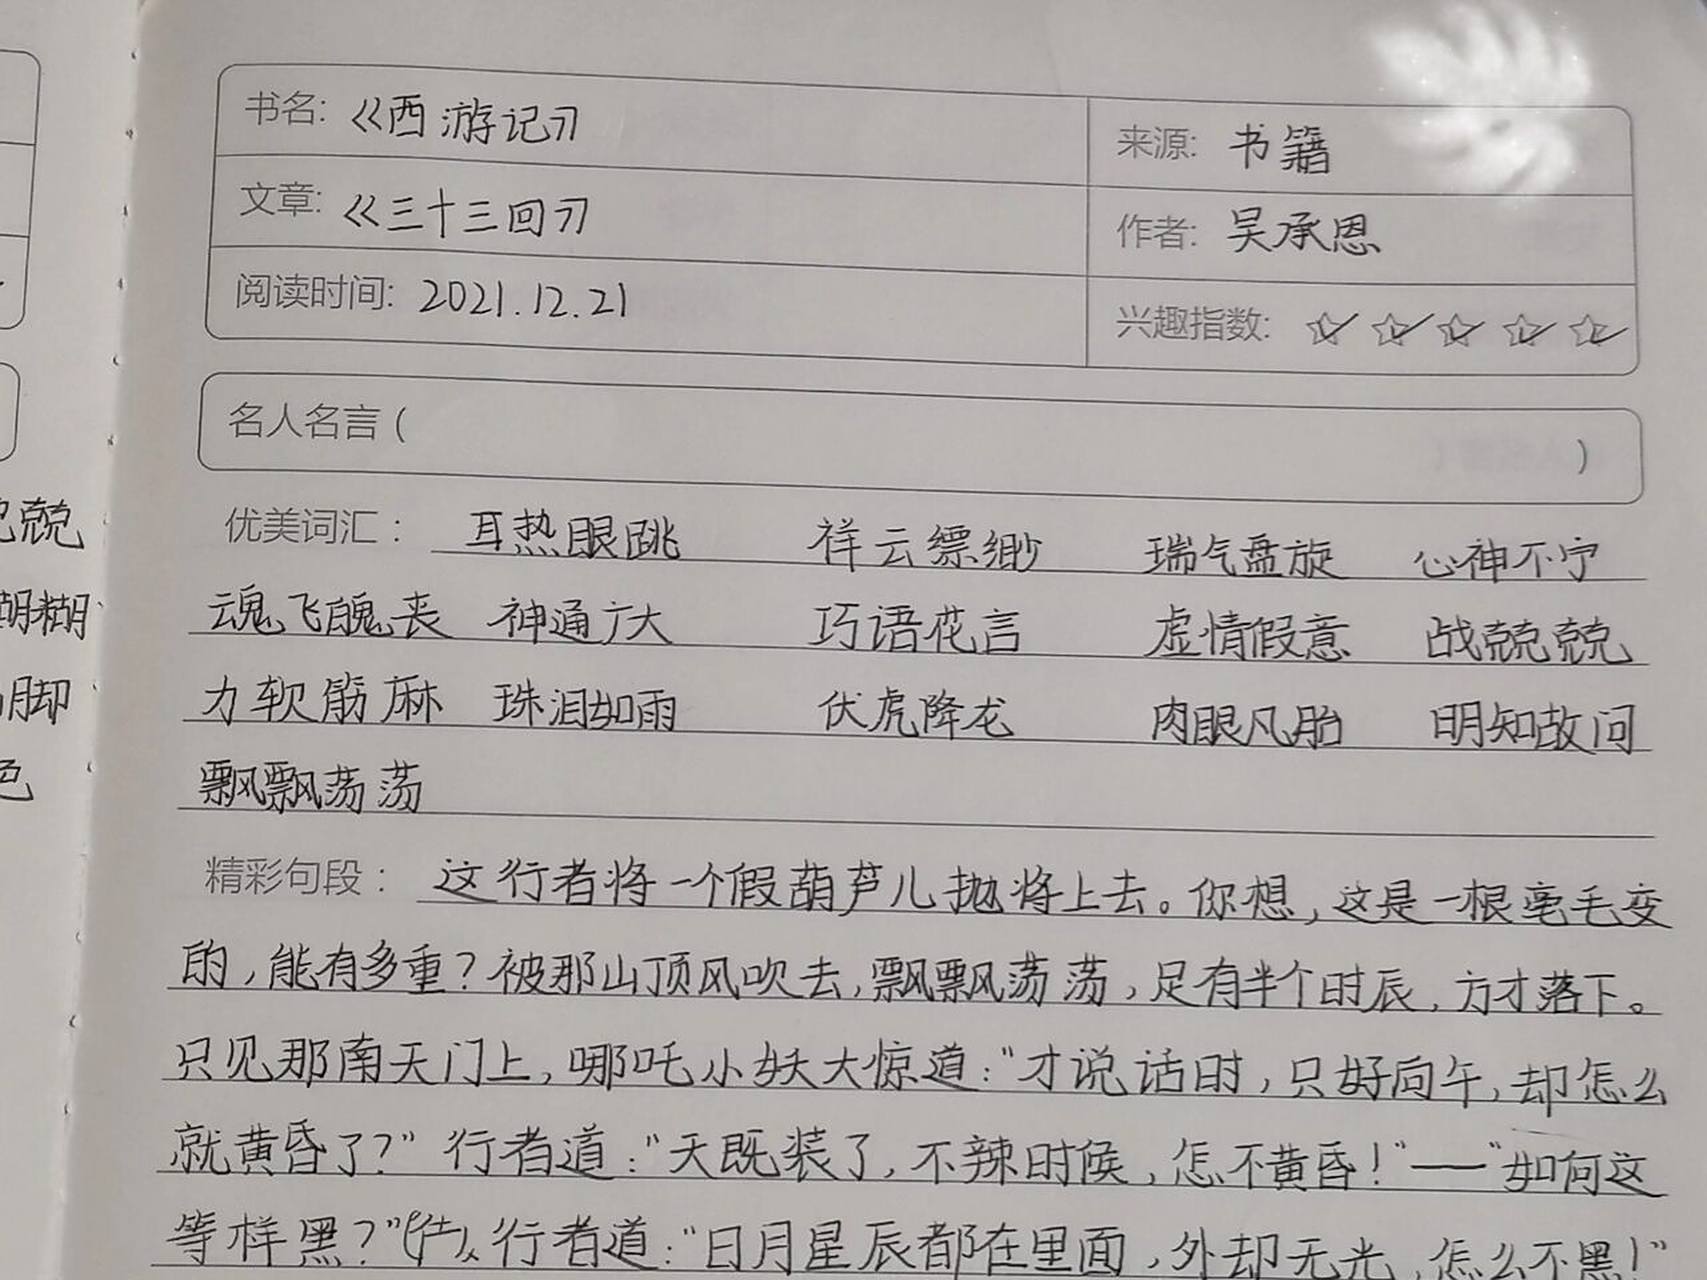 书名:《西游记》
来源:书籍
文章:《三十三回》
作者:吴承恩
阅读时间:2021.12.21
兴趣指数:☆☆☆☆☆
名人名言( )
优美词汇: 耳热眼跳 祥云缥缈 瑞气盘旋 心神不宁
魂飞魄丧 神通广大 巧语花言 虚情假意 战兢兢
力软筋麻 珠泪如雨 伏虎降龙 肉眼凡胎 明知故问
飘飘荡荡
精彩句段: 这行者将一个假葫芦儿抛将上去。你想,这是一根毫毛变
的,能有多重?被那山顶风吹去,飘飘荡荡,足有半个时辰,方才落下。
只见那南天门上,哪吒小妖大惊道:"才说话时,只好向午,却怎么
就黄昏了?"行者道:"天既装了,不辨时候,怎不黄昏!"——"如何这
等样黑?"行者道:"日月星辰都在里面,外却无光,怎么不黑!"
兢兢
糊糊
脚
色